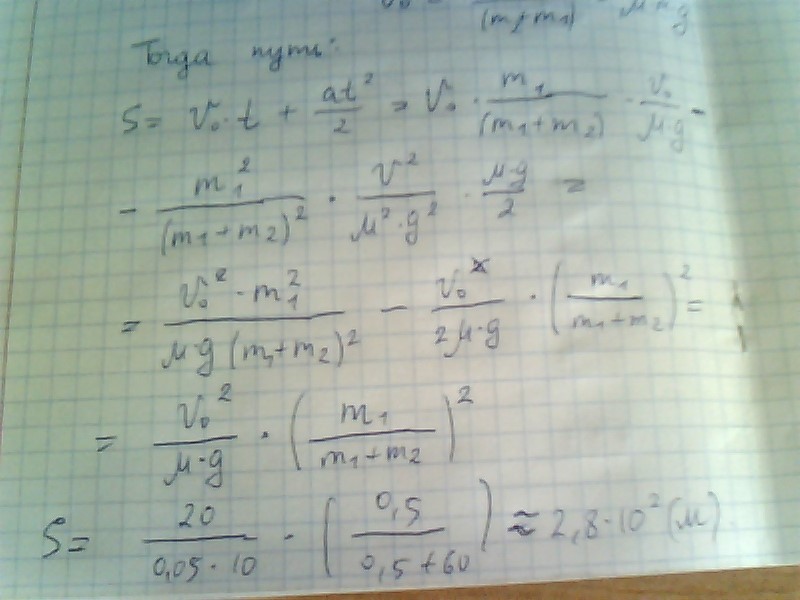 (m₁+m₁) μ·g
Тогда путь:
S = V₀·t + at²/2 = V₀ · m₁/(m₁+m₂) · V₀/μ·g -
- m₁²/(m₁+m₂)² · V²/μ²·g² · μ·g/2 =
= V₀²·m₁²/μ·g(m₁+m₂)² - V₀²/2μ·g · (m₁/m₁+m₂)² =
= V₀²/μ·g · (m₁/m₁+m₂)²
S = 20/0,05·10 · (0,5/0,5+60) ≈ 2,8·10² (м)